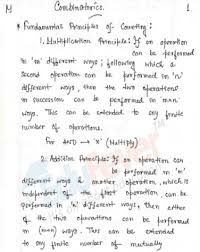 M Combinatorics. 1.
* Fundamental Principles of Counting :
1. Multiplication Principle: If an operation
can be performed
in 'm' different ways ; following which a
second operation can be performed in 'n'
different ways, then the two operations
in succession can be performed in m×n
ways. This can be extended to any finite
number of operations.
For AND → 'x' (Multiply)
2. Addition Principle: If an operation can
be performed in 'm'
different ways & another operation, which is
independent of the first operation, can be
performed in 'n' different ways, then either
of the two operations can be performed
in (m+n) ways. This can be extended
to any finite number of mutually